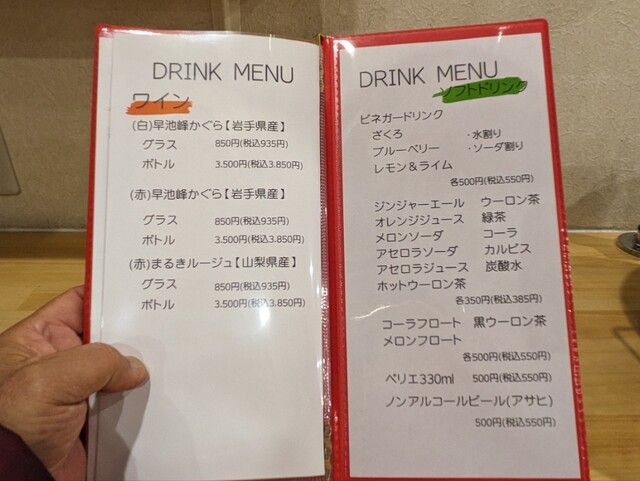 DRINK MENU
ワイン
(白)早池峰かぐら【岩手県産】
グラス 850円(税込935円)
ボトル 3.500円(税込3.850円)
(赤)早池峰かぐら【岩手県産】
グラス 850円(税込935円)
ボトル 3.500円(税込3.850円)
(赤)まるきルージュ【山梨県産】
グラス 850円(税込935円)
ボトル 3.500円(税込3.850円)
DRINK MENU
ソフトドリンク
ビネガードリンク
ざくろ ・水割り
ブルーベリー ・ソーダ割り
レモン＆ライム
各500円(税込550円)
ジンジャーエール ウーロン茶
オレンジジュース 緑茶
メロンソーダ コーラ
アセロラソーダ カルピス
アセロラジュース 炭酸水
ホットウーロン茶
各350円(税込385円)
コーラフロート 黒ウーロン茶
メロンフロート
各500円(税込550円)
ペリエ330ml 500円(税込550円)
ノンアルコールビール(アサヒ)
500円(税込550円)